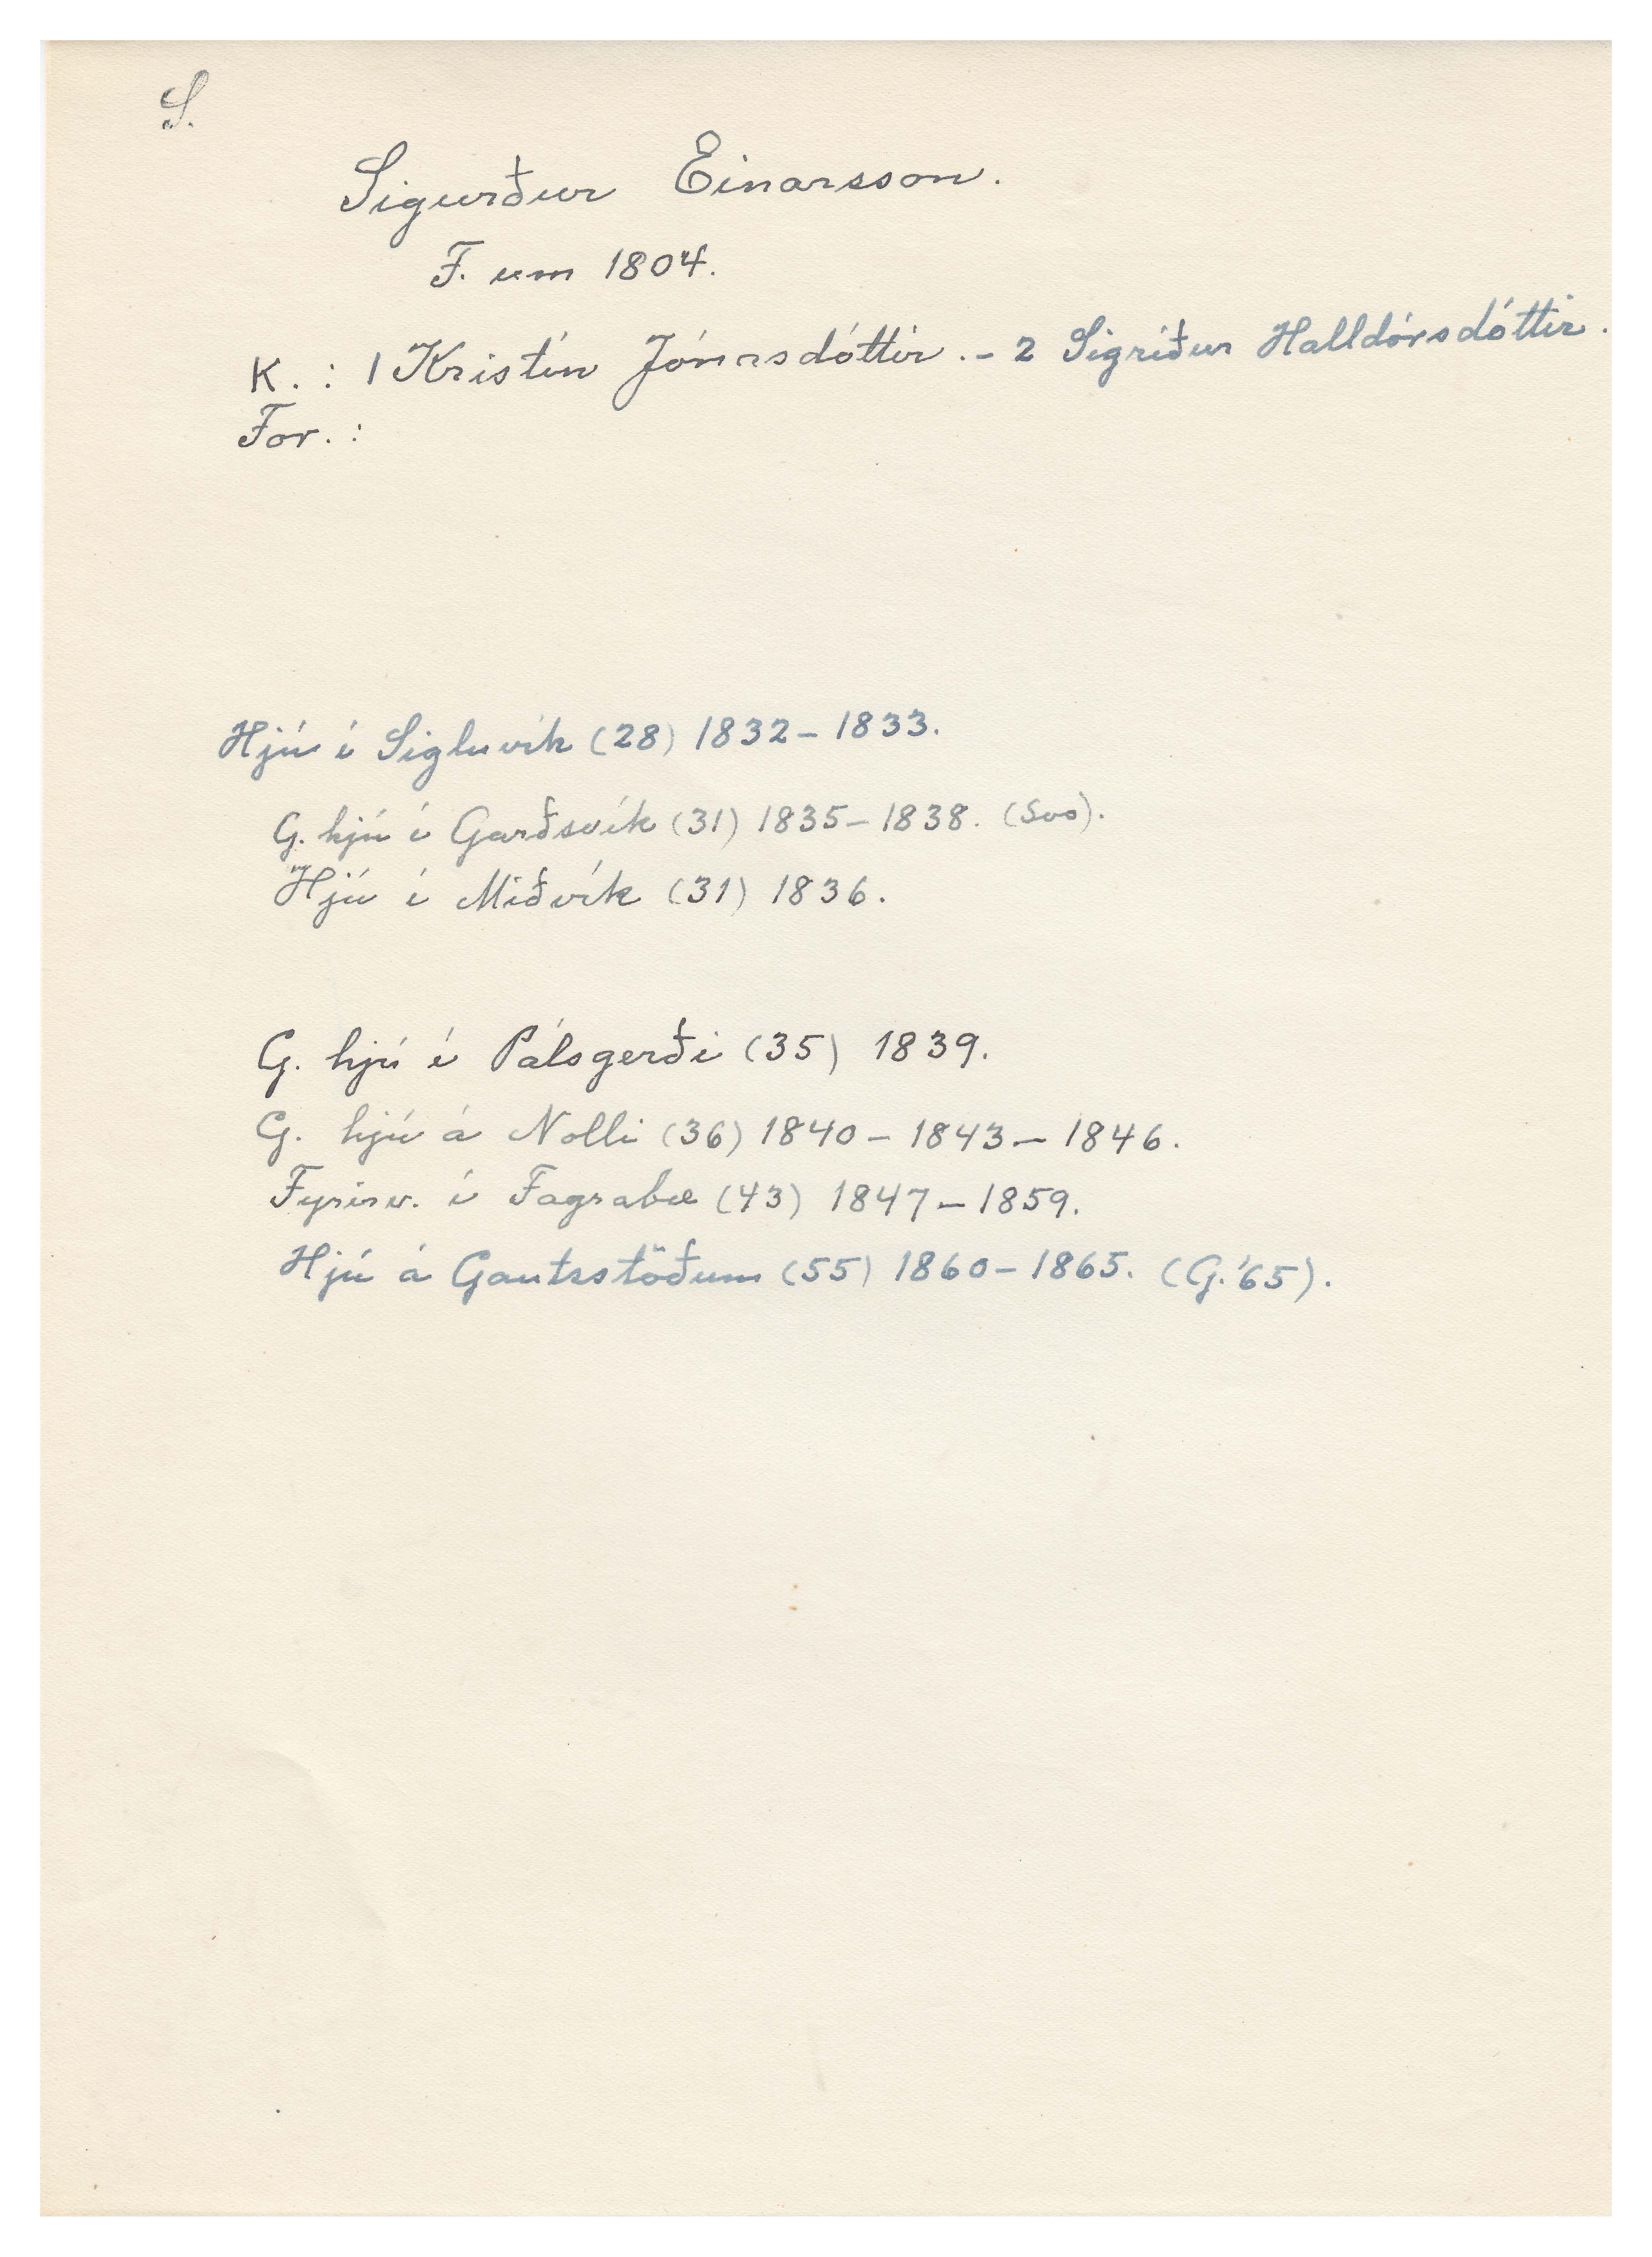 S.
Sigurður Einarsson.
F. um 1804.
K. : 1 Kristín Jónasdóttir. - 2 Sigríður Halldórsdóttir.
For. :
Hjú í Sigluvík (28) 1832 - 1833.
G. hjú í Garðsvík (31) 1835 - 1838. (Svo).
Hjú í Miðvík (31) 1836.
G. hjú í Pálsgerði (35) 1839.
G. hjú á Nolli (36) 1840 - 1843 - 1846.
Fyrirv. í Fagrabæ (43) 1847 - 1859.
Hjú á Gautsstöðum (55) 1860 - 1865. (G. '65).